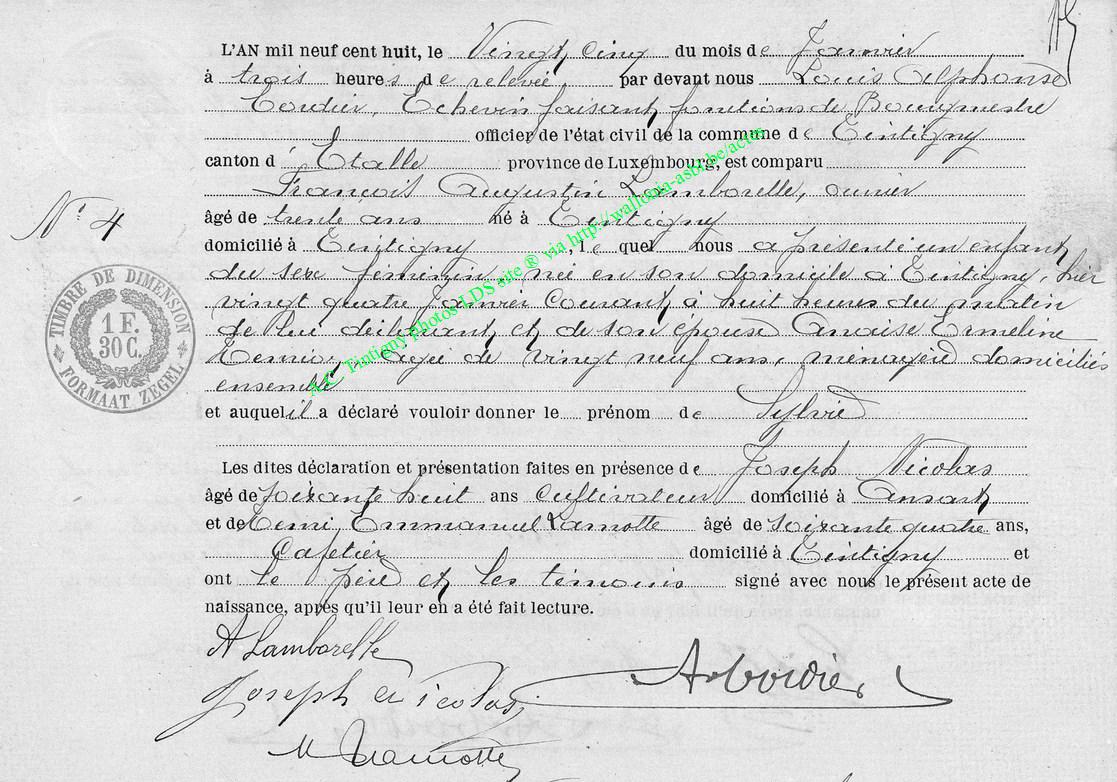 L'AN mil neuf cent huit, le Vingt cinq du mois de Janvier
à trois heures de relevée par devant nous Louis Alphonse
Cordier, Echevin faisant fonctions de Bourgmestre
officier de l'état civil de la commune de Tintigny
canton d'Etalle province de Luxembourg, est comparu
François Augustin Lamborelle, ouvrier
N° 4
âgé de trente ans né à Tintigny
domicilié à Tintigny, lequel nous a présenté un enfant
du sexe féminin, née en son domicile à Tintigny, hier
vingt quatre Janvier courant à huit heures du matin
de lui déclarant et de son épouse Anaïse Ermeline
âgée de vingt neuf ans, ménagère domiciliés
ensemble
et auquel il a déclaré vouloir donner le prénom de Sylvie
Les dites déclaration et présentation faites en présence de Joseph Nicolas
âgé de soixante huit ans cultivateur domicilié à Ansart
et de Emmanuel Lamotte âgé de soixante quatre ans,
Cafetier domicilié à Tintigny et
ont le père et les témoins signé avec nous le présent acte de
naissance, après qu'il leur en a été fait lecture.
A Lamborelle
Joseph Nicolas
Cordier
Lamotte
TIMBRE DE DIMENSION
1 F.
30 C.
FORMAAT ZEGEL
A.C Tintigny photos LDS site ® via http://wallonia-asbl.be/actes